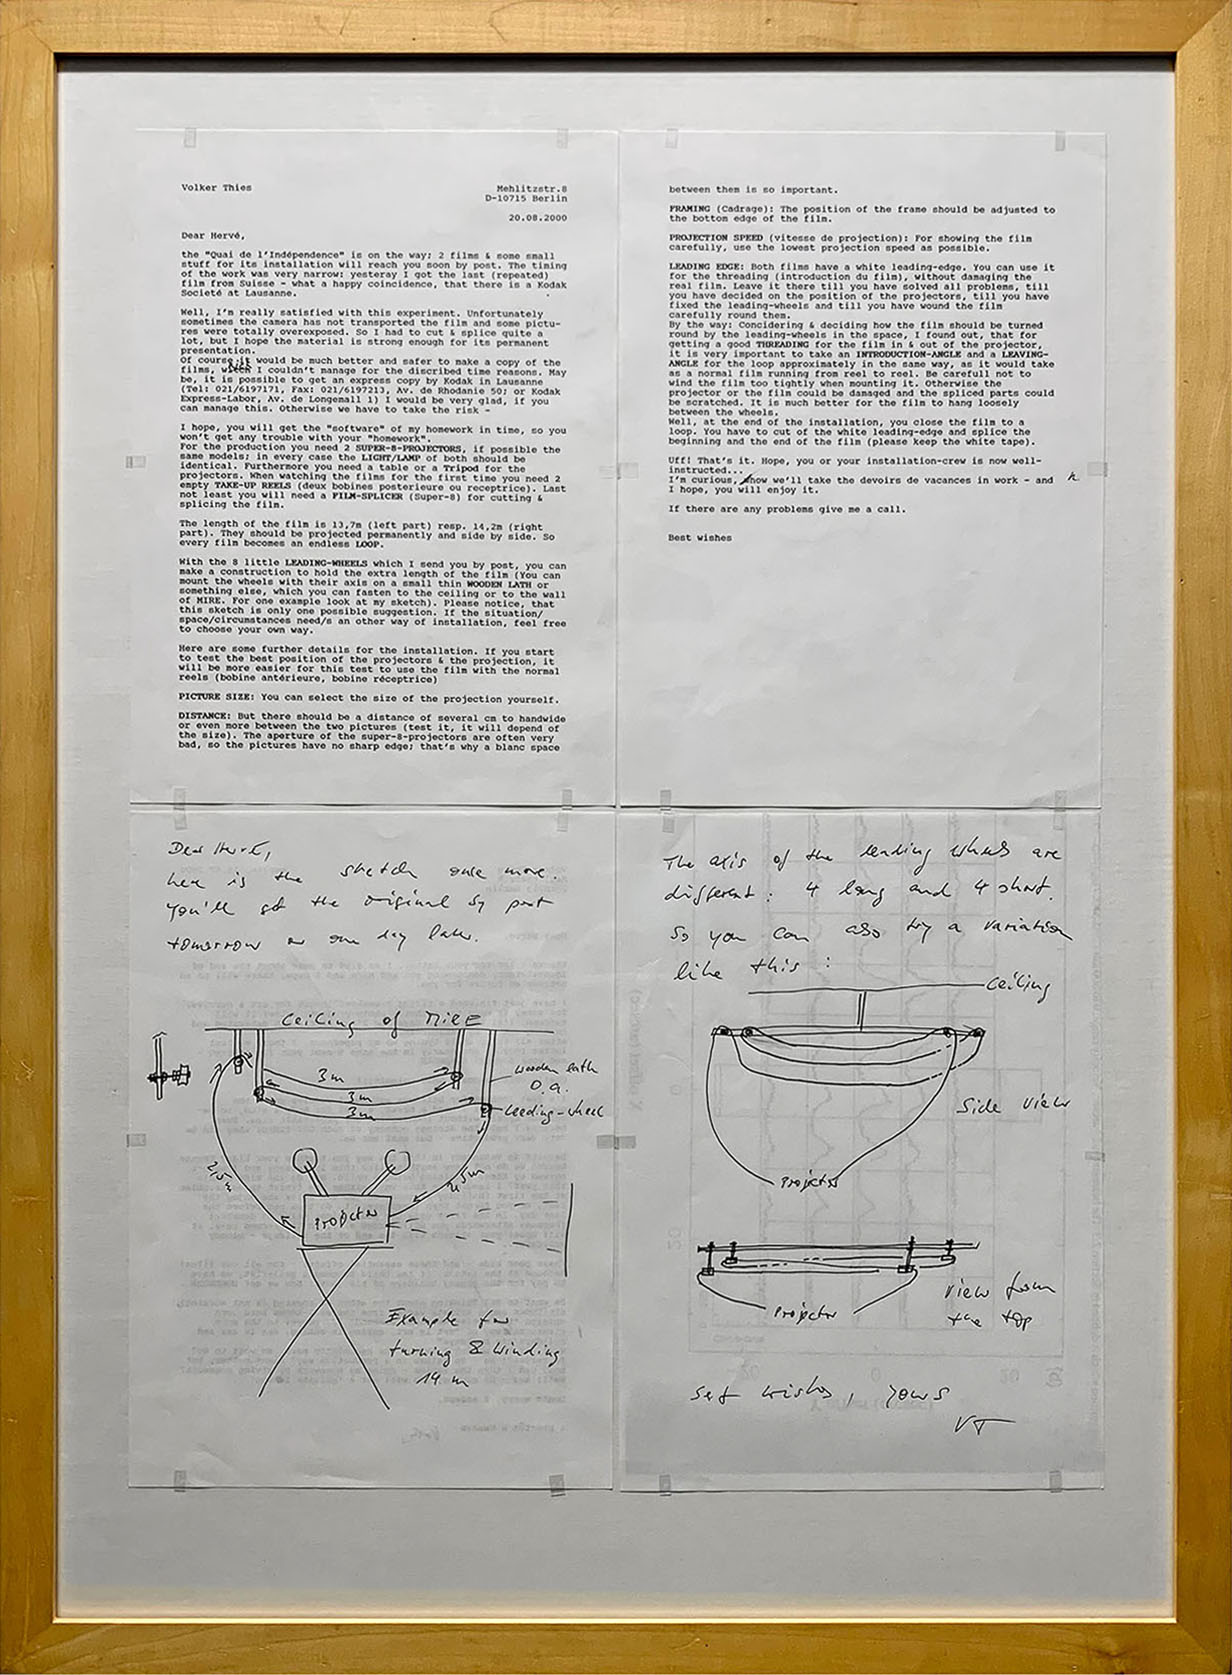 Volker Thies
Mehlitzstr.8
D-10715 Berlin
20.08.2000
Dear Hervé,
the "Quai de l'Indépendence" is on the way; 2 films & some small
stuff for its installation will reach you soon by post. The timing
of the work was very narrow: yesteray I got the last (repeated)
film from Suisse - what a happy coincidence, that there is a Kodak
Societé at Lausanne.
Well, I'm really satisfied with this experiment. Unfortunately
sometimes the camera has not transported the film and some pictu-
res were totally overexposed. So I had to cut & splice quite a
lot, but I hope the material is strong enough for its permanent
presentation.
Of course it would be much better and safer to make a copy of the
films, I couldn't manage for the discribed time reasons. May
be, it is possible to get an express copy by Kodak in Lausanne
(Tel: 021/6197171, Fax: 021/6197213, Av. de Rhodanie 50; or Kodak
Express-Labor, Av. de Longemall 1) I would be very glad, if you
can manage this. Otherwise we have to take the risk -
I hope, you will get the "software" of my homework in time, so you
won't get any trouble with your "homework".
For the production you need 2 SUPER-8-PROJECTORS, if possible the
same models; in every case the LIGHT/LAMP of both should be
identical. Furthermore you need a table or a Tripod for the
projectors. When watching the films for the first time you need 2
empty TAKE-UP REELS (deux bobines posterieure ou receptrice). Last
not least you will need a FILM-SPLICER (Super-8) for cutting &
splicing the film.
The length of the film is 13,7m (left part) resp. 14,2m (right
part). They should be projected permanently and side by side. So
every film becomes an endless LOOP.
With the 8 little LEADING-WHEELS which I send you by post, you can
make a construction to hold the extra length of the film (You can
mount the wheels with their axis on a small thin WOODEN LATH or
something else, which you can fasten to the ceiling or to the wall
of MIRE. For one example look at my sketch). Please notice, that
this sketch is only one possible suggestion. If the situation/
space/circumstances need/s an other way of installation, feel free
to choose your own way.
Here are some further details for the installation. If you start
to test the best position of the projectors & the projection, it
will be more easier for this test to use the film with the normal
reels (bobine antérieure, bobine réceptrice)
PICTURE SIZE: You can select the size of the projection yourself.
DISTANCE: But there should be a distance of several cm to handwide
or even more between the two pictures (test it, it will depend of
the size). The aperture of the super-8-projectors are often very
bad, so the pictures have no sharp edge; that's why a blanc space
between them is so important.
FRAMING (Cadrage): The position of the frame should be adjusted to
the bottom edge of the film.
PROJECTION SPEED (vitesse de projection): For showing the film
carefully, use the lowest projection speed as possible.
LEADING EDGE: Both films have a white leading-edge. You can use it
for the threading (introduction du film), without damaging the
real film. Leave it there till you have solved all problems, till
you have decided on the position of the projectors, till you have
fixed the leading-wheels and till you have wound the film
carefully round them.
By the way: Concidering & deciding how the film should be turned
round by the leading-wheels in the space, I found out, that for
getting a good THREADING for the film in & out of the projector,
it is very important to take an INTRODUCTION-ANGLE and a LEAVING-
ANGLE for the loop approximately in the same way, as it would take
as a normal film running from reel to reel. Be carefull not to
wind the film too tightly when mounting it. Otherwise the
projector or the film could be damaged and the spliced parts could
be scratched. It is much better for the film to hang loosely
between the wheels.
Well, at the end of the installation, you close the film to a
loop. You have to cut of the white leading-edge and splice the
beginning and the end of the film (please keep the white tape).
Uff! That's it. Hope, you or your installation-crew is now well-
instructed...
I'm curious, how we'll take the devoirs de vacances in work - and
I hope, you will enjoy it.
If there are any problems give me a call.
Best wishes
Dear Hervé,
here is the sketch once more.
You'll get the original by post
tomorrow or one day later.
Ceiling of MIRE
3m
3m
3m
wooden lath
o.a.
leading-wheel
2,5m
2,5m
Projector
Example for
turning & winding
14 m
The axis of the leading wheels are
different: 4 long and 4 short.
So you can also try a variation
like this:
Ceiling
Side view
Projector
Projector
view from
the top
Best wishes, yours
VT